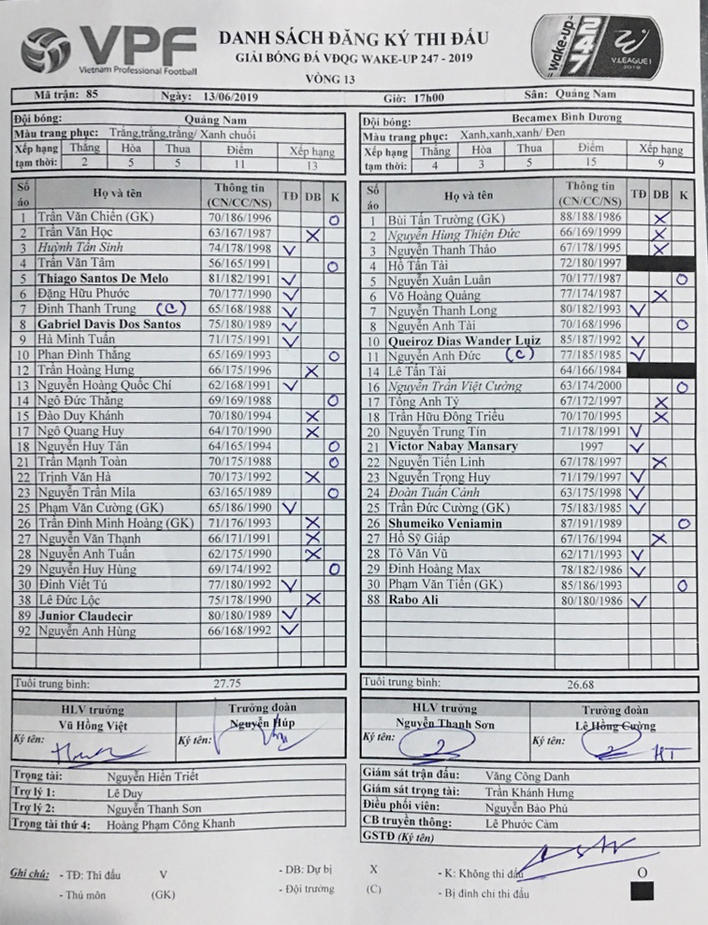 VPF
Vietnam Professional Football
DANH SÁCH ĐĂNG KÝ THI ĐẤU
GIẢI BÓNG ĐÁ VĐQG WAKE-UP 247 - 2019
VÒNG 13
wake-up 247
V.LEAGUE 1
2019
Mã trận: 85 Ngày: 13/06/2019 Giờ: 17h00 Sân: Quảng Nam
Đội bóng: Quảng Nam
Màu trang phục: Trắng,trắng,trắng/ Xanh chuối
Xếp hạng tạm thời: Thắng Hòa Thua Điểm Xếp hạng
2 5 5 11 13
Số áo Họ và tên Thông tin (CN/CC/NS) TĐ DB K
1 Trần Văn Chiến (GK) 70/186/1996 O
2 Trần Văn Học 63/167/1987 X
3 Huỳnh Tấn Sinh 74/178/1998 V
4 Trần Văn Tâm 56/165/1991 O
5 Thiago Santos De Melo 81/182/1991 V
6 Đặng Hữu Phước 70/177/1990 V
7 Đinh Thanh Trung (C) 65/168/1988 V
8 Gabriel Davis Dos Santos 75/180/1989 V
9 Hà Minh Tuấn 71/175/1991 V
10 Phan Đình Thắng 65/169/1993 O
12 Trần Hoàng Hưng 66/175/1996 X
13 Nguyễn Hoàng Quốc Chí 62/168/1991 V
14 Ngô Đức Thắng 69/169/1988 O
15 Đào Duy Khánh 70/180/1994 X
17 Ngô Quang Huy 64/170/1990 X
18 Nguyễn Huy Tân 64/165/1994 O
21 Trần Mạnh Toàn 70/175/1988 O
22 Trịnh Văn Hà 70/173/1992 X
23 Nguyễn Trần Mila 63/165/1989 O
25 Phạm Văn Cường (GK) 65/186/1990 V
26 Trần Đình Minh Hoàng (GK) 71/176/1993 X
27 Nguyễn Văn Thạnh 66/171/1991 X
28 Nguyễn Anh Tuấn 62/175/1990 X
29 Nguyễn Huy Hùng 69/174/1992 O
30 Đinh Viết Tú 77/180/1992 V
38 Lê Đức Lộc 75/178/1990 X
89 Junior Claudecir 80/180/1989 V
92 Nguyễn Anh Hùng 66/168/1992 V
Tuổi trung bình: 27.75
HLV trưởng Trưởng đoàn
Vũ Hồng Việt Nguyễn Húp
Ký tên: Ký tên:
Trọng tài: Nguyễn Hiền Triết
Trợ lý 1: Lê Duy
Trợ lý 2: Nguyễn Thanh Sơn
Trọng tài thứ 4: Hoàng Phạm Công Khanh
Đội bóng: Becamex Bình Dương
Màu trang phục: Xanh,xanh,xanh/ Đen
Xếp hạng tạm thời: Thắng Hòa Thua Điểm Xếp hạng
4 3 5 15 9
Số áo Họ và tên Thông tin (CN/CC/NS) TĐ DB K
1 Bùi Tấn Trường (GK) 88/188/1986 X
2 Nguyễn Hùng Thiện Đức 66/169/1999 X
3 Nguyễn Thanh Thảo 67/178/1995 X
4 Hồ Tấn Tài 72/180/1997
5 Nguyễn Xuân Luân 70/177/1987 O
6 Võ Hoàng Quảng 77/174/1987 X
7 Nguyễn Thanh Long 80/182/1993 V
8 Nguyễn Anh Tài 70/168/1996 O
10 Queiroz Dias Wander Luiz 85/187/1992 V
11 Nguyễn Anh Đức (C) 77/185/1985 V
14 Lê Tấn Tài 64/166/1984
16 Nguyễn Trần Việt Cường 63/174/2000 O
17 Tống Anh Tỷ 67/172/1997 X
18 Trần Hữu Đông Triều 70/170/1995 X
20 Nguyễn Trung Tín 71/178/1991 V
21 Victor Nabay Mansary 1997 V
22 Nguyễn Tiến Linh 67/178/1997 X
23 Nguyễn Trọng Huy 71/179/1997 V
24 Đoàn Tuấn Cảnh 63/175/1998 V
25 Trần Đức Cường (GK) 75/183/1985 V
26 Shumeiko Veniamin 87/191/1989 O
27 Hồ Sỹ Giáp 67/176/1994 X
28 Tô Văn Vũ 62/171/1993 V
29 Đinh Hoàng Max 78/182/1986 V
30 Phạm Văn Tiến (GK) 85/186/1993 O
88 Rabo Ali 80/180/1986 V
26.68
HLV trưởng Trưởng đoàn
Nguyễn Thanh Sơn Lê Hồng Cường
Ký tên: Ký tên:
HT
Giám sát trận đấu: Văng Công Danh
Giám sát trọng tài: Trần Khánh Hưng
Điều phối viên: Nguyễn Bảo Phú
CB truyền thông: Lê Phước Cảm
GSTĐ (Ký tên)
Ghi chú: - TĐ: Thi đấu V - DB: Dự bị X - K: Không thi đấu O
- Thủ môn (GK) - Đội trưởng (C) - Bị đình chỉ thi đấu